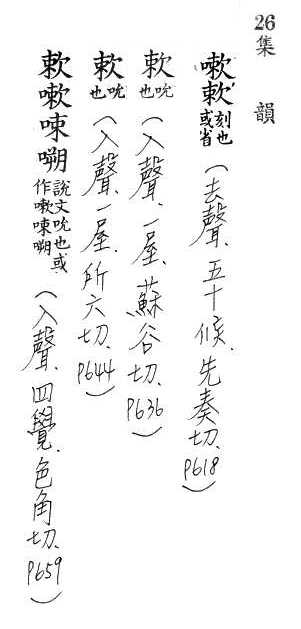 26集韻
嗽欶刻也或省(去聲、五十候、先奏切、P618)
欶吮也(入聲、一屋、蘇谷切、P636)
欶吮也(入聲、一屋、所六切、P644)
欶嗽㖩嗍說文吮也或作嗽㖩嗍(入聲、四覺、色角切、P659)